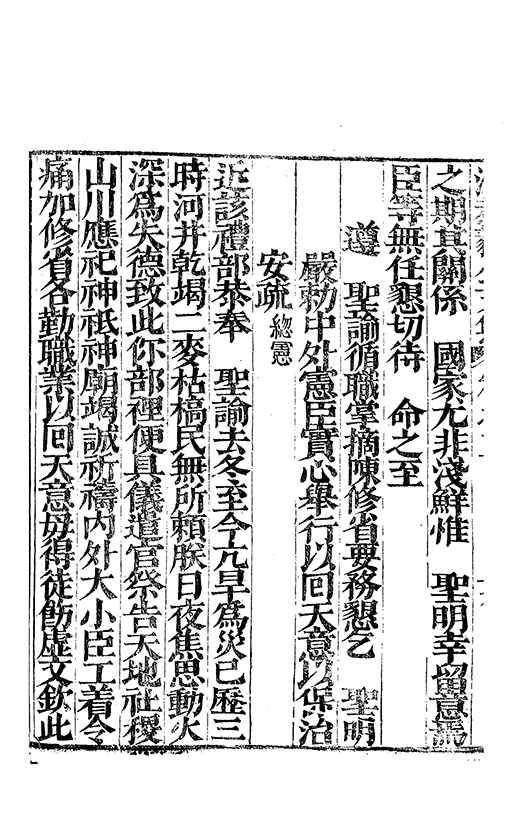 之期其關係　國家尤非淺鮮惟　聖明幸留意焉
臣等無任懇切待　命之至
遵　聖諭循職掌摘陳修省要務懇乞　聖明
嚴勑中外憲臣實心舉行以回天意以保治
安疏 總憲
近該禮部恭奉　聖諭去冬至今亢旱為災已歷三
時河井乾竭二麥枯槁民無所賴朕日夜焦思動火
深為失德致此你部裡便具儀遣官祭告天地社稷
山川應祀神祇神廟竭誠祈禱內外大小臣工着令
痛加修省各勤職業以回天意毋得徒飭虛文欽此